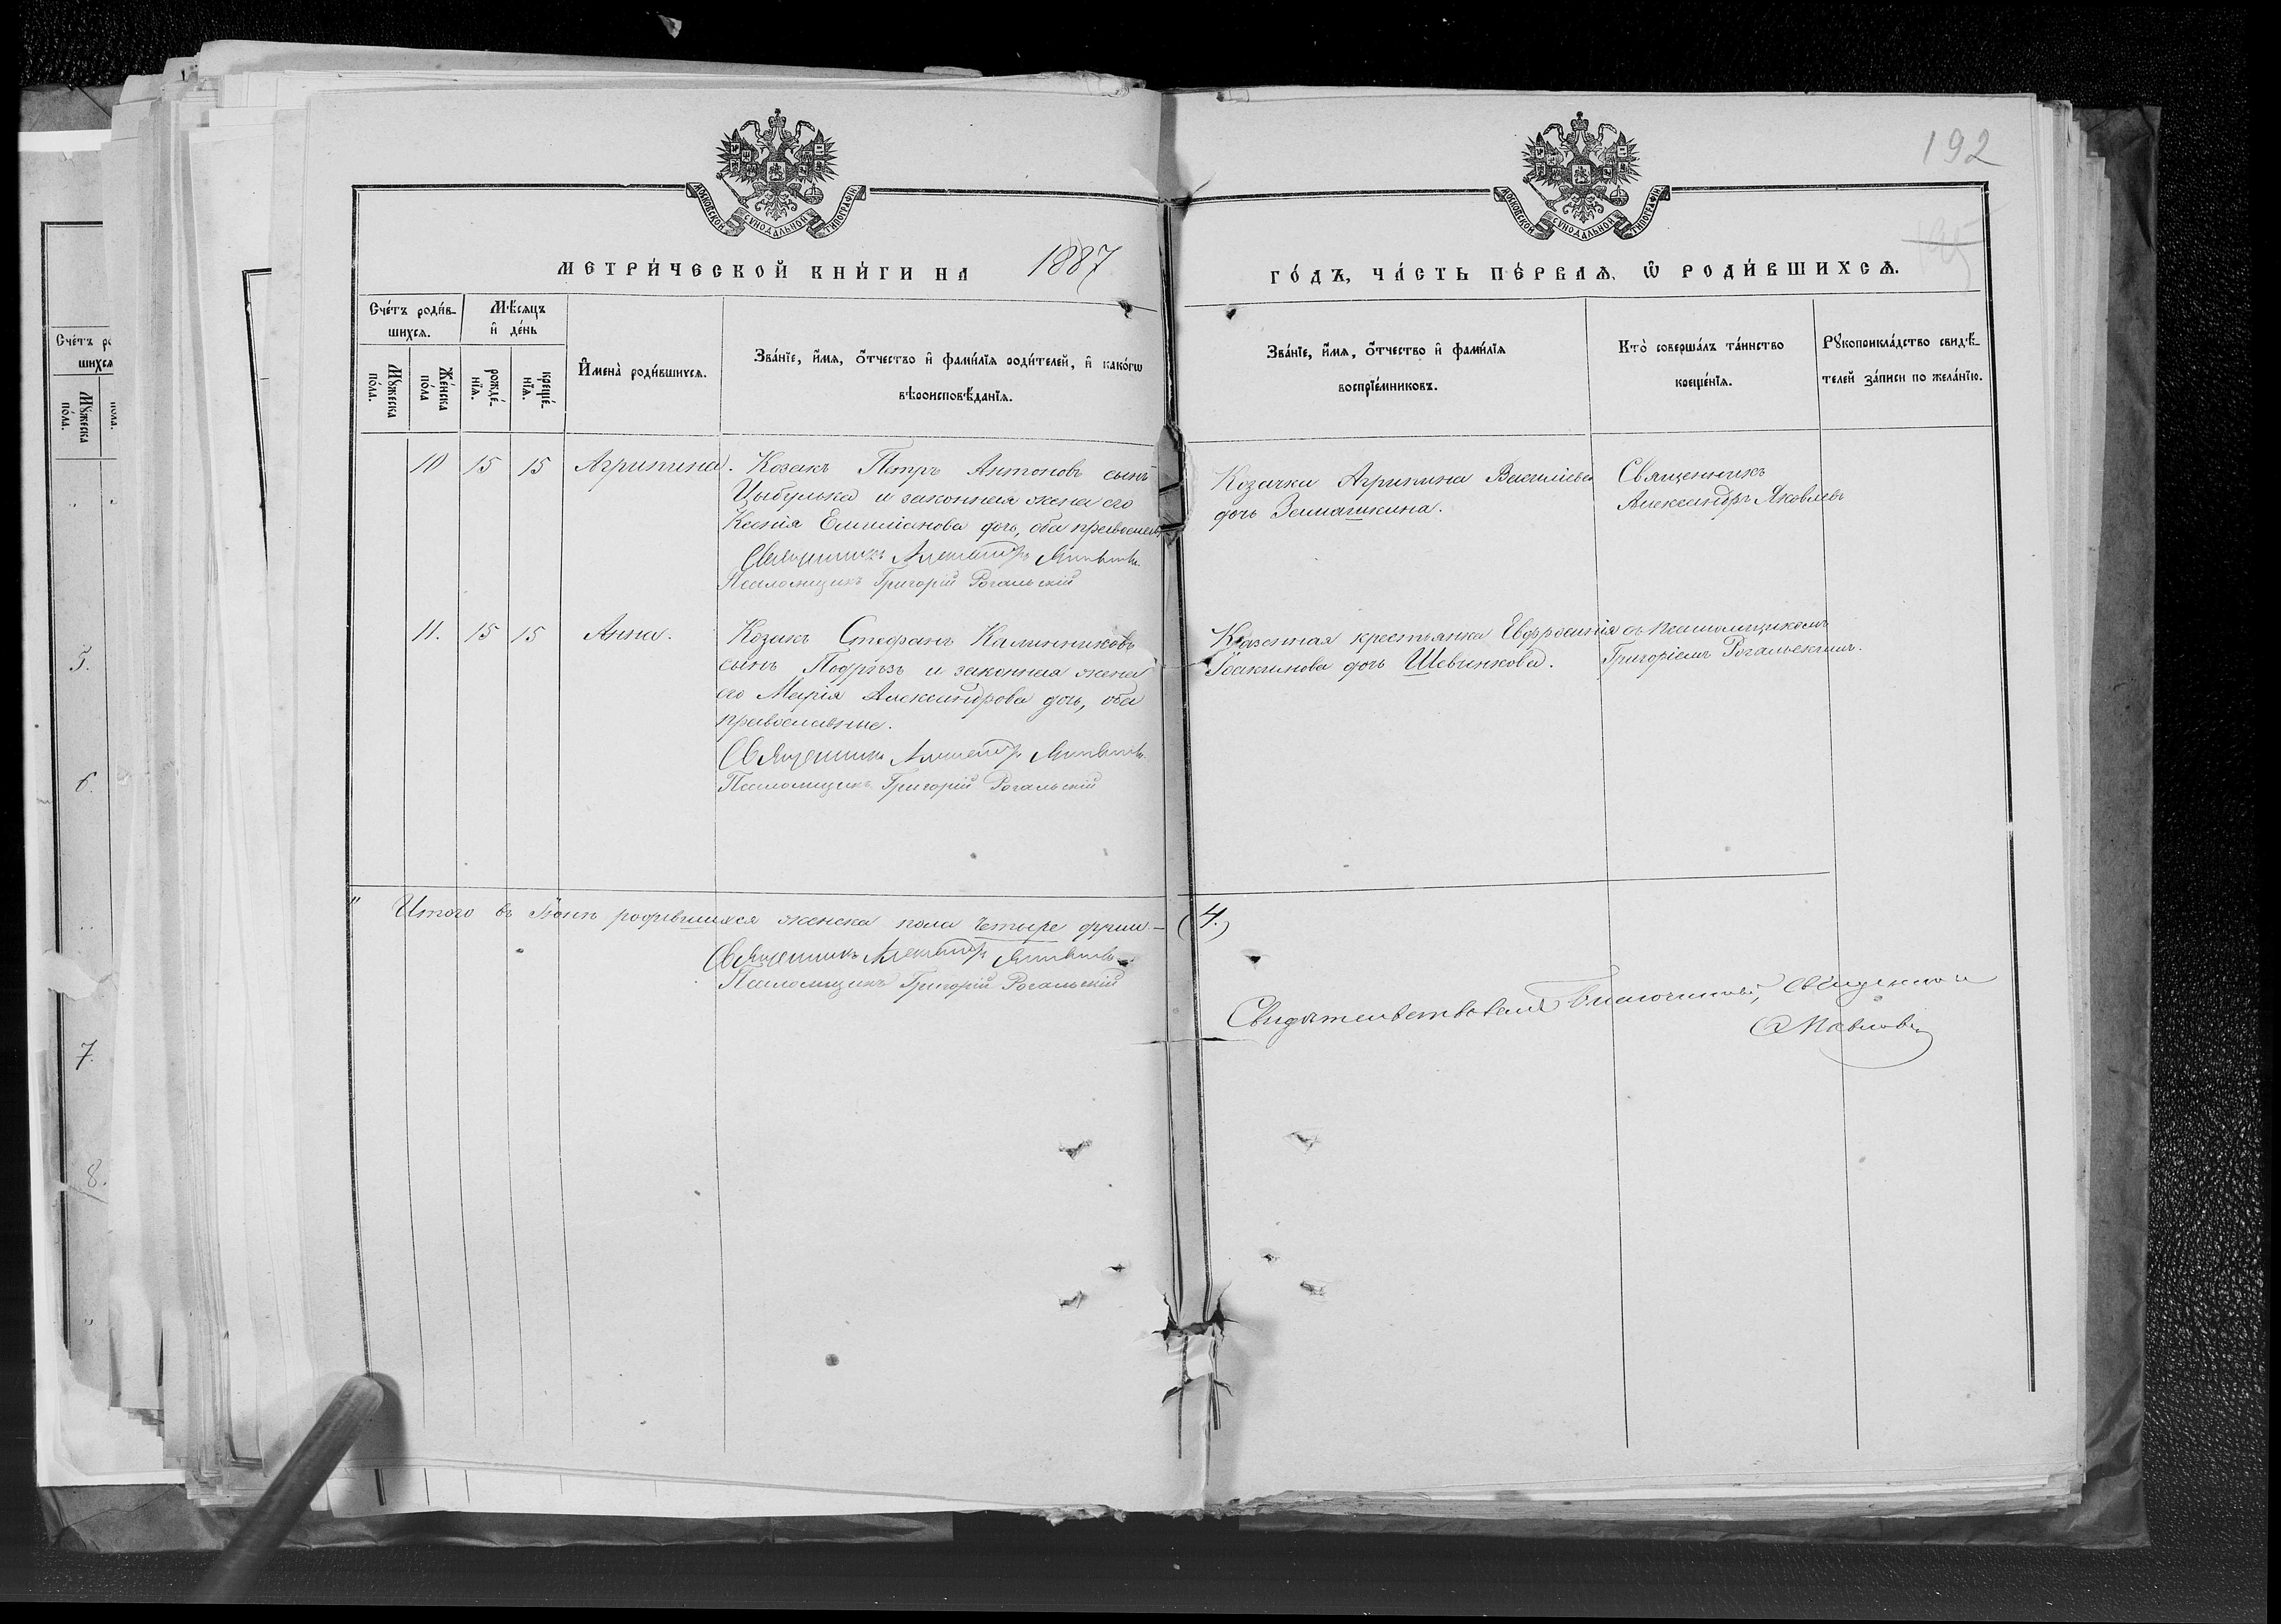 192
МОСКОВСКОЙ СѴНОДАЛЬНОЙ ТИПОГРАФІИ
МОСКОВСКОЙ СѴНОДАЛЬНОЙ ТИПОГРАФІИ
МЕТРИ́ЧЕСКОЙ КНИ́ГИ НА 1887
ГО́ДЪ, ЧА́СТЬ ПЕ́РВАѦ, Ѿ РОДИ́ВШИХСѦ.
Сче́тъ роди́в-
шихсѧ.
Мѣ́сѧцъ
и҆ де́нь
Мꙋ́жеска
по́ла.
Же́нска
по́ла
рожде́-
нїѧ.
креще́-
нїѧ.
И҆мена̀ роди́вшихсѧ.
Зва́нїе, и҆́мѧ, ѻ҆́тчество и҆ фами́лїѧ роди́телей, и҆ како́гѡ
вѣроисповѣ́данїѧ.
Зва́нїе, и҆́мѧ, ѻ҆́тчество и҆ фами́лїѧ
воспрїе́мниковъ.
Кто̀ соверша́лъ та́инство
креще́нїѧ.
Рꙋкоприкла́дство свидѣ́-
телей за́писи по жела́нїю.
10 15 15 Агрипина. Козакъ Петръ Антоновъ сынъ
Цыбулька и законная жена его
Ксенія Емиліанова дочь, оба православн.
Священникъ Александръ Яковлевъ
Псаломщикъ Григорій Рогальскій
Козачка Агрипина Василіева
дочьЗемашкина.
Священникъ
Александръ Яковлевъ
11. 15 15 Анна. Козакъ Стефанъ Калинниковъ
сынъ Подрѣзъ и законная жена
его Марія Александрова дочь, оба
православные.
Священникъ Александръ Яковлевъ
Псаломщикъ Григорій Рогальскій
Казенная крестьянка Евфросинія
Іоакимова дочь Шевчикова.
съ псаломщикомъ
Григоріемъ Рогальскимъ.
" Итого въ Іюнѣ родившихся женска пола четыре души — (4.)
Священникъ Александръ Яковлевъ
Псаломщикъ Григорій Рогальскій
Свидѣтельствовалъ Благочинный, Священникъ
Павловъ
Сче́тъ ро
шихсѧ
Мꙋ́жеска
по́ла.
5.
6.
7.
8.